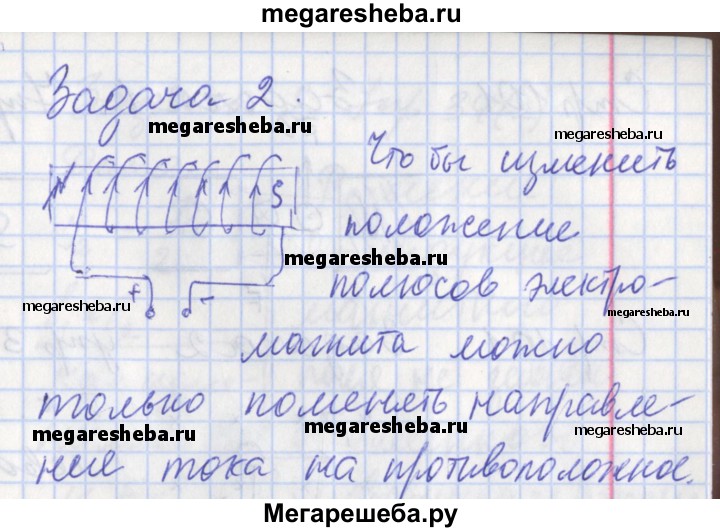 megaresheba.ru
Задача 2.
megaresheba.ru
megaresheba.ru
N S
Что бы изменить
положение
megaresheba.ru
+ -
полюсов электро-
megaresheba.ru
megaresheba.ru
магнита можно
только поменять направле-
megaresheba.ru
megaresheba.ru
ние тока на противоположное.
Мегарешеба.ру